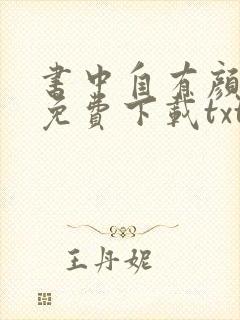 書中自有顏
免費下載txt
王丹妮